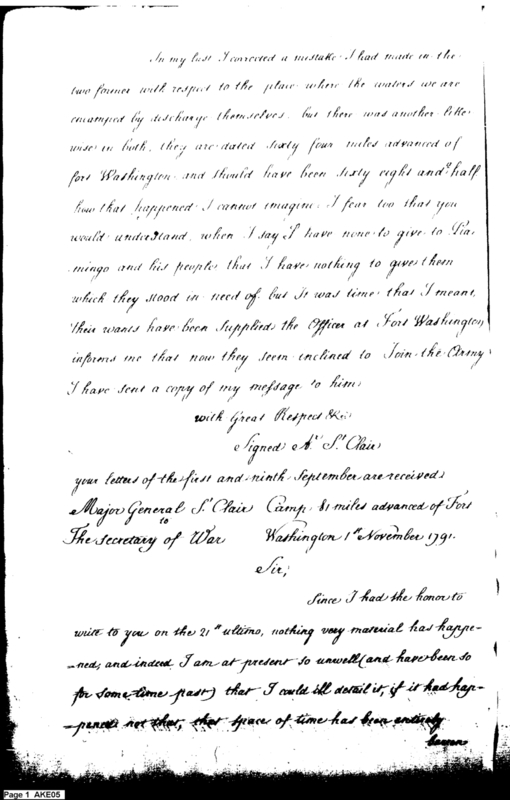 In my last I corrected a mistake I had made in the
two former with respect to the place where the waters we are
encamped by discharge themselves. but there was another like
wise in both, they are dated sixty four miles advanced of
fort Washington and should have been sixty eight and a half
how that happened I cannot imagine. I fear too that you
would understand, when I say I have none to give to Pia-
mingo and his people that I have nothing to give them
which they stood in need of but it was time that I meant,
Their wants have been supplied the Officer at Fort Washington
informs me that now they seem inclined to Join the Army
I have sent a copy of my message to him
with Great Respect &c:
Signed Ar. St Clair
your letters of the first and ninth September are received
Major General St Clair Camp 81 miles advanced of Fort
to
The Secretary of War Washington 1st November 1791.
Sir;
Since I had the honor to
write to you on the 21st ultimo, nothing very material has happe-
-ned, and indeed I am at present so unwell (and have been so
for some time past) that I could ill detail it, if it had hap-
-pened: not that, that space of time has been entirely
barren
Page 1 AKE05